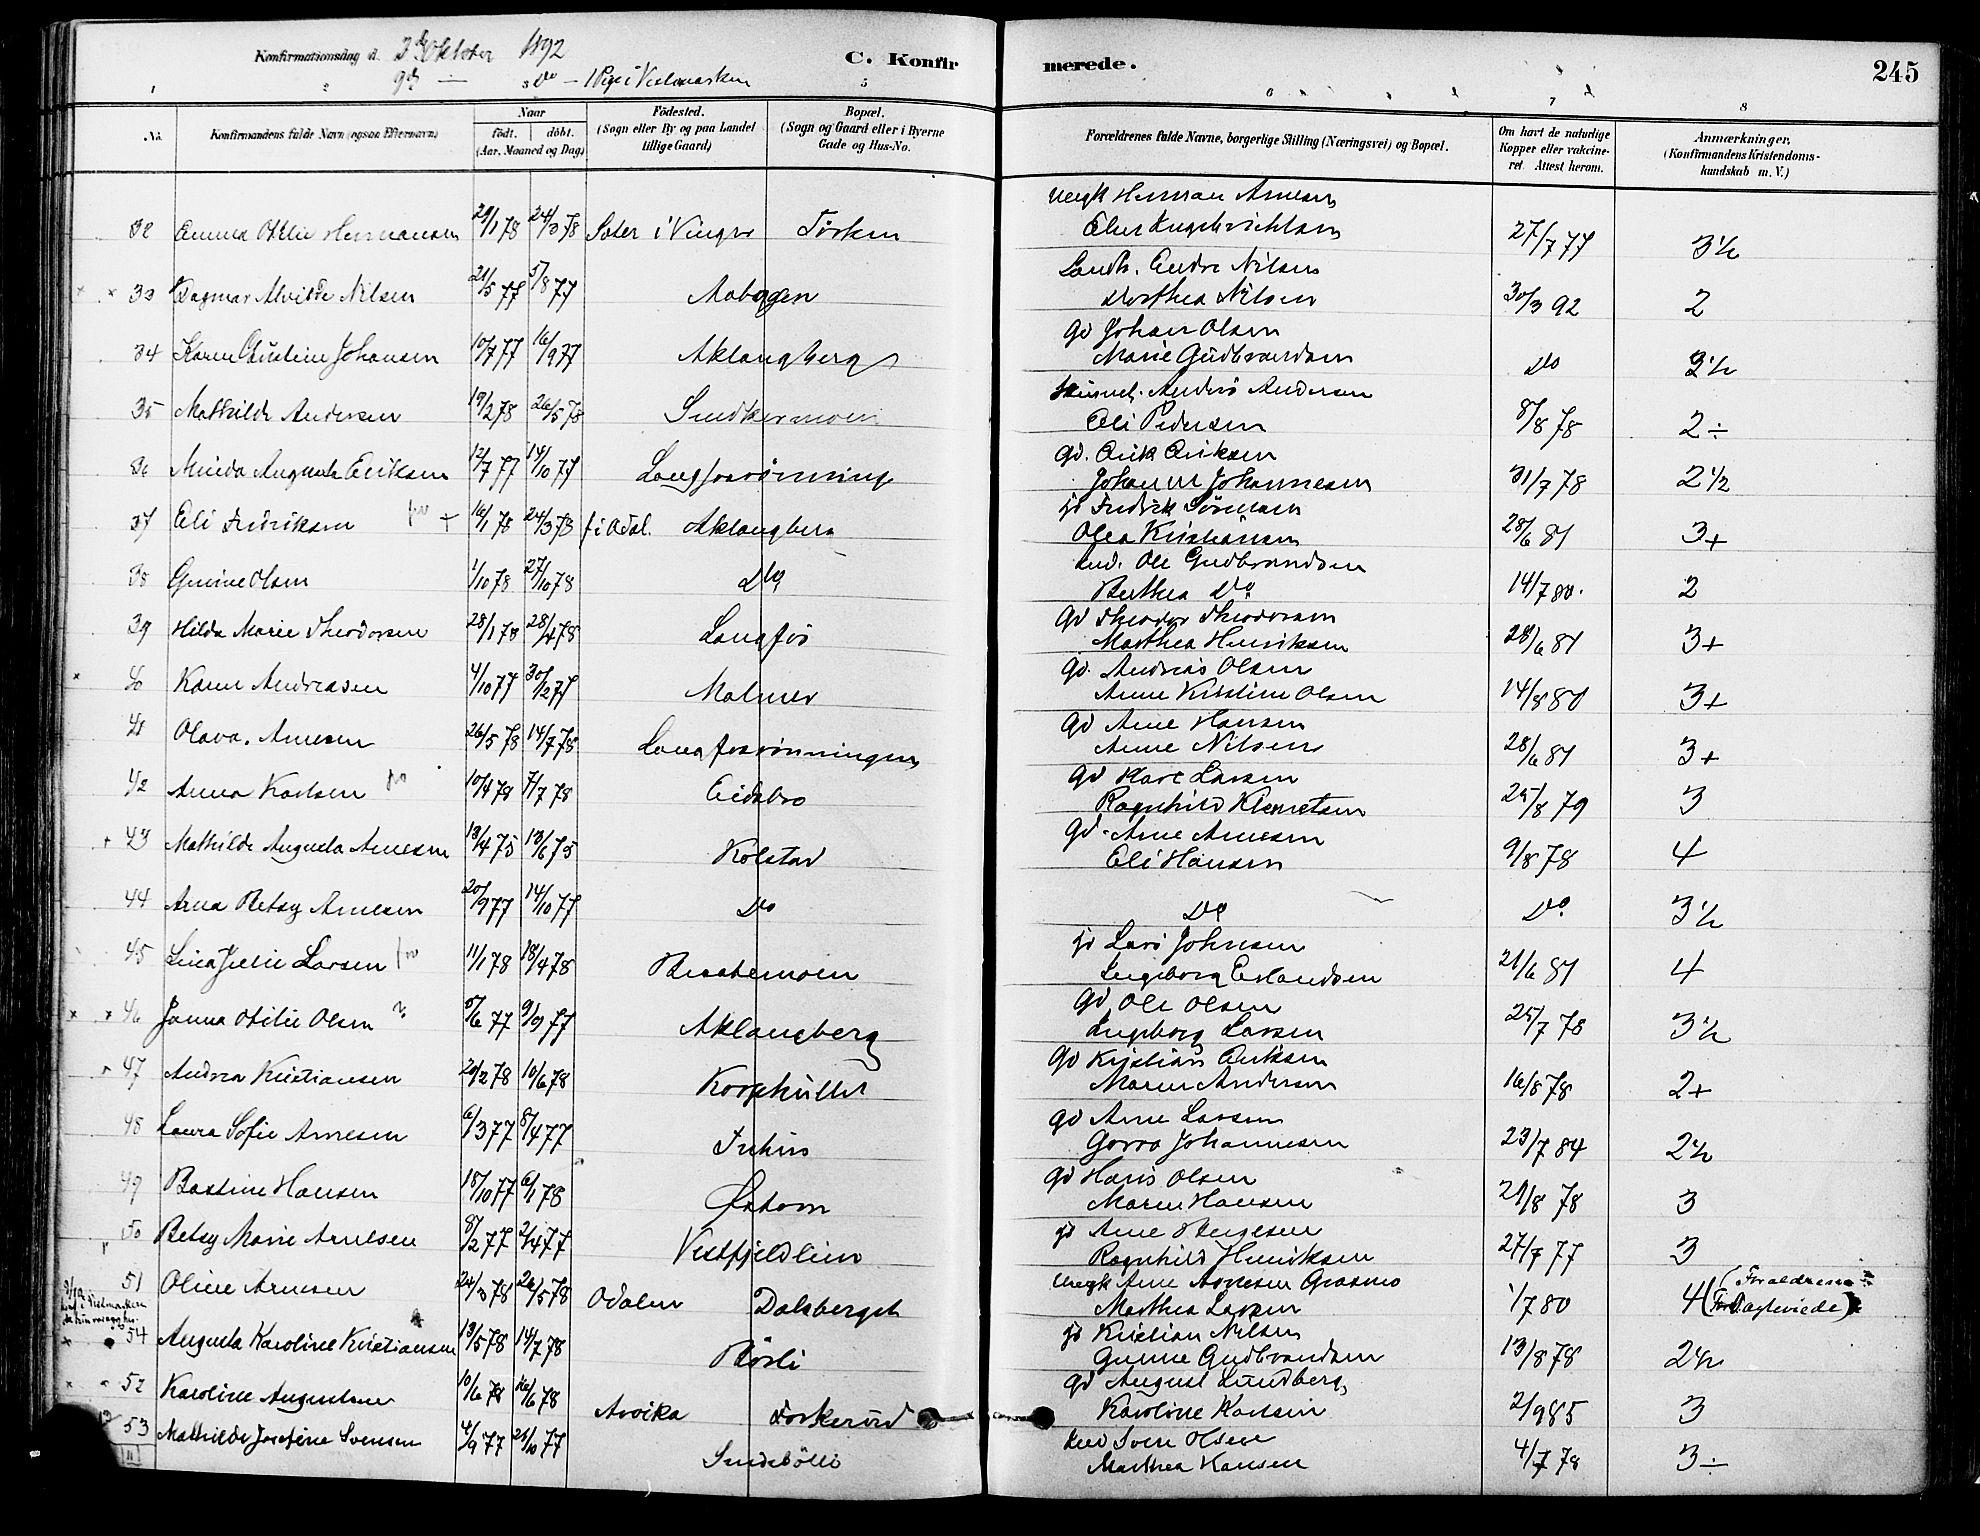 Konfirmationsdag d. 2d Oktober 1892
9d — Do — 1 Pige i Vestmarken
C. Konfirmerede.
245
1 2 3 5 6 7 8
No. Konfirmandens fulde Navn (ogsaa Efternavn) Naar födt. döbt. (Aar, Maaned og Dag) Födested. (Sogn eller By og paa Landet tillige Gaard) Bopæl. (Sogn og Gaard eller i Byerne Gade og Hus-No. Forældrenes fulde Navne, borgerlige Stilling (Næringsvei) og Bopæl. Om havt de naturlige Kopper eller vakcineret. Attest herom. Anmærkninger. (Konfirmandens Kristendomskundskab m. V.)
32 Emma Otilie Hermansen 29/1 78 24/3 78 Soter i Vinger Tørken Herman Arnesen
Eline Engebrichtsen 27/7 77 3½
33 Dagmar Alvilde Nilsen 21/5 77 5/8 77 Aabogen Landh. Andr Nilsen
Dorthea Nilsen 30/3 92 2
34 Karen Christine Johansen 10/7 77 16/9 77 Aklangberg Gd Johan Olsen
Marie Gudbrandsen Do 3½
35 Mathilde Andersen 19/2 78 26/5 78 Anders Andersen
Eli Pedersen 8/8 78 2÷
36 Augusta Eriksen 12/7 77 14/10 77 Langfosrønning Gd. Erik Eriksen
Johanne Johannesen 31/7 78 2½
37 Eli Fredriksen 16/1 78 24/3 78 f i Odal. Aklangberg Fredrik
Olea Kristiansen 28/6 81 3+
38 Gunine Olsen 1/10 78 27/10 78 Do Ole Gudbrandsen
Berthea Do 14/7 80. 2
39 Hilda Marie Theodorsen 28/1 78 28/4 78 Langfos Gd Theodor Theodorsen
Marthea Henriksen 28/6 81 3+
40 Karen Andreasen 4/10 77 30/12 77 Malmer Gd. Andreas Olsen
Anne Kristine Olsen 14/8 80 3+
41 Olava. Arnesen 26/5 78 14/7 78 Langfosrønningen Gd Arne Hansen
Anne Nilsen 28/6 81 3+
42 Anna Karlsen 10/4 78 7/7 78 Eidsbro Gd Karl Larsen
Ragnhild Klemetsen 25/8 79 3
43 Mathilde Augusta Arnesen 13/4 75 13/6 75 Kolstad Gd. Arne Arnesen
Eli Hansen 9/8 78 4
44 Arna Betsy Arnesen 20/9 77 14/10 77 Do Do Do 3½
45 Lina Julie Larsen 11/1 78 18/4 78 Lars Johnsen
Ingeborg Erlandsen 21/6 81 4
46 Janna Otilie Olsen 5/6 77 9/9 77 Aklangberg Gd Ole Olsen
Ingeborg Larsen 25/7 78 3½
47 Andrea Kristiansen 20/2 78 10/6 78 Korphullet Gd Kristian Eriksen
Maren Andersen 16/8 78 2+
48 Laura Sofie Arnesen 6/3 77 8/4 77 Gd Arne Larsen
Gorra Johannesen 23/7 84 2½
49 Bastine Hansen 18/10 77 6/1 78 Østom Gd Hans Olsen
Maren Hansen 29/8 78 3
50 Betsy Marie Arnesen 8/2 77 2/4 77 Vestfjeldlien Arne
Ragnhild Henriksen 27/7 77 3
51 Oline Arnesen 24/3 78 26/5 78 Odalen Dalsberget Arne Arnesen Grasmo
Marthea Larsen 1/7 80 4 (Forældrene
54 Augusta Karoline Kristiansen 13/5 78 14/7 78 Børli Kristian Nilsen
Gunne Gudbrandsen 13/8 78 2½
52 Karoline Augustsen 10/6 78 16/6 78 Arvika Torkerud Gd August Lundberg
Karoline Karlsen 2/9 85 3
53 Mathilde Josefine Svensen 4/9 77 21/10 77 Sven Olsen
Marthea Hansen 4/7 78 3÷